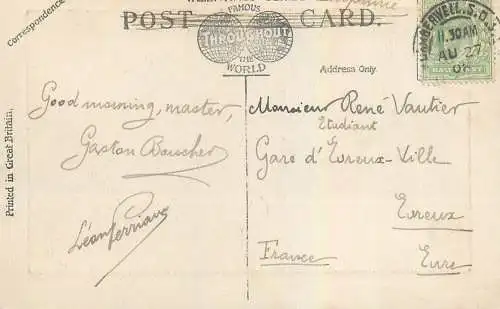 POST CARD.
FAMOUS
THROUGHOUT
THE
WORLD
Correspondence
Address Only.
Printed in Great Britain.
CAMBERWELL. S.O.
11.30AM
AU 27
Good morning, master,
Gaston Boucher
Monsieur René Vautier
Etudiant
Gare d'Evreux-Ville
Evreux
France Eure